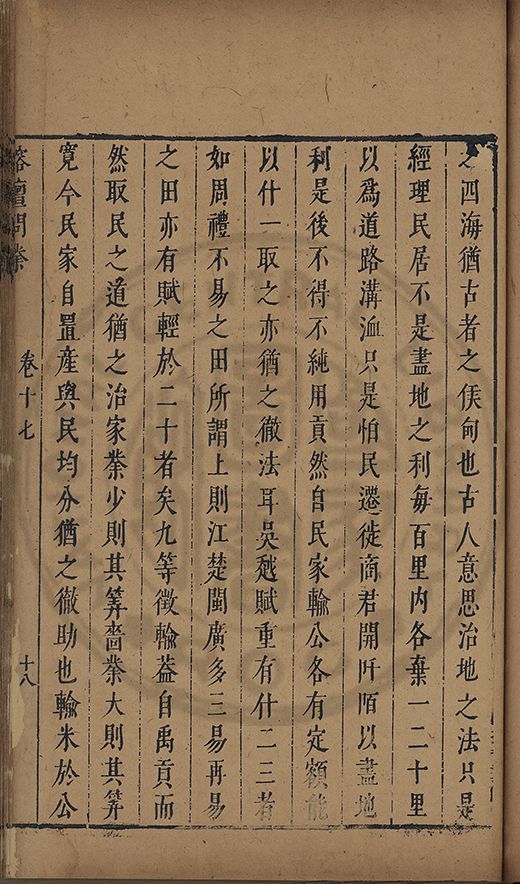 之四海猶古者之侯甸也古人意思治地之法只是
經理民居不是盡地之利每百里内各棄一二十里
以爲道路溝洫只是怕民遷徙商君開阡陌以盡地
利是後不得不純用貢然自民家輸公各有定額能
以什一取之亦猶之徹法耳吳越賦重有什二三者
如周禮不易之田所謂上則江楚閩廣多三易再易
之田亦有賦輕於二十者矣九等徵輸葢自禹貢而
然取民之道猶之治家業少則其筭嗇業大則其筭
寛今民家自置産與民均分猶之徹助也輸米於公
榕壇問業
卷十七
十八